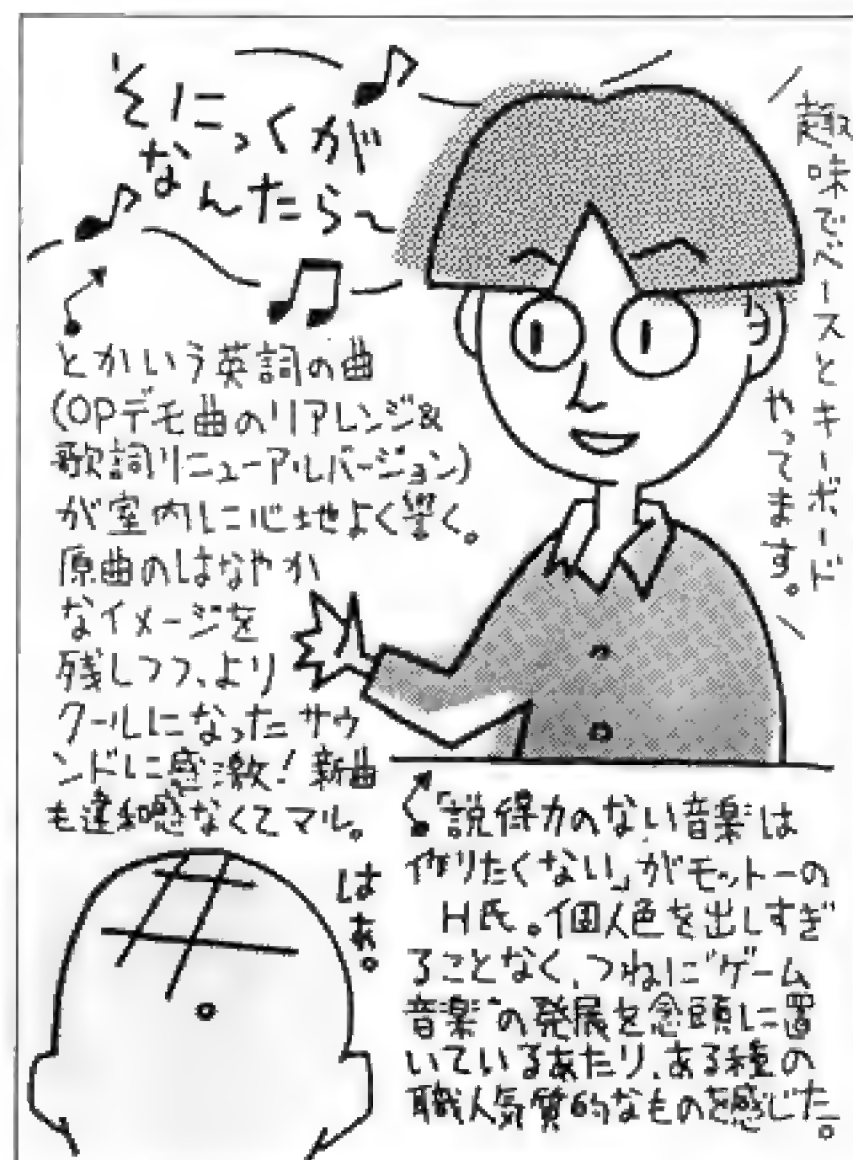 趣味でベースとキーボード
やってます。
そにっくが
なんたら〜
とかいう英詞の曲
(OPデモ曲のリアレンジ&
歌詞リニューアルバージョン)
が室内に心地よく響く。
原曲のはなやか
なイメージを
残しつつ、より
クールになったサウ
ンドに感激!新曲
も違和感なくてマル。
「説得力のない音楽は
作りたくない」がモットーの
H氏。個人色を出しすぎ
ることなく、つねに“ゲーム
音楽”の発展を念頭に置
いているあたり、ある種の
職人気質的なものを感じた。
はぁ。